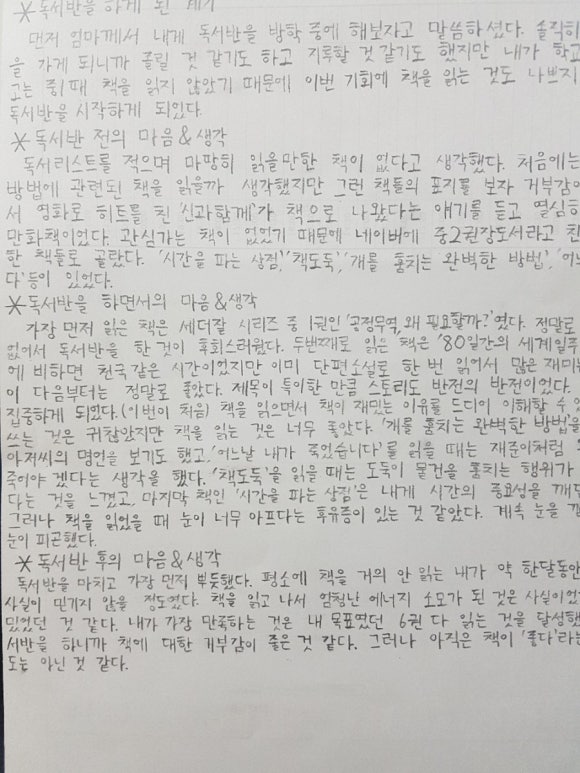 *독서반을 하게 된 계기
먼저 엄마께서 내게 독서반을 방학 중에 해보자고 말씀하셨다. 솔직히
을 가게 되니까 졸릴 것 같기도 하고 지루할 것 같기도 했지만 내가 학교
고는 쥐1때 책을 읽지 않았기 때문에 이번 기회에 책을 읽는 것도 나쁘지
독서반을 시작하게 되었다.
*독서반 전의 마음&생각
독서리스트를 적으며 마땅히 읽을만한 책이 없다고 생각했다. 처음에는
방법에 관련된 책을 읽을까 생각했지만 그런 책들의 표지를 보자 거부감이
서 영화로 히트를 친 '신과함께'가 책으로 나왔다는 얘기를 듣고 열심히
만화책이었다. 관심가는 책이 없었기 때문에 네이버에 중2권장도서라고 친
한 책들로 골랐다. '시간을 파는 상점', '책도둑', '개를 훔치는 완벽한 방법', '어느
다' 등이 있었다.
*독서반을 하면서의 마음&생각
가장 먼저 읽은 책은 세더잘 시리즈 중 1권인 '공정무역, 왜 필요할까?'였다. 정말로
없어서 독서반을 한 것이 후회스러웠다. 두번째로 읽은 책은 '80일간의 세계일주
에 비하면 천국같은 시간이었지만 이미 단편소설로 한 번 읽어서 많은 재미는
이 다음부터는 정말로 좋았다. 제목이 특이한 만큼 스토리도 반전의 반전이었다.
집중하게 되었다.(이번이 처음) 책을 읽으면서 책이 재밌는 이유를 드디어 이해할 수 있
쓰는 것은 귀찮았지만 책을 읽는 것은 너무 좋았다. '개를 훔치는 완벽한 방법'을
아저씨의 명언을 보기도 했고, '어느날 내가 죽었습니다'를 읽을 때는 재준이처럼
죽어야 겠다는 생각을 했다. '책도둑'을 읽을 때는 도둑이 물건을 훔치는 행위가
다는 것을 느꼈고, 마지막 책인 '시간을 파는 상점'은 내게 시간의 중요성을 깨닫
그러나 책을 읽었을 때 눈이 너무 아프다는 후유증이 있는 것 같았다. 계속 눈을 깜
눈이 피곤했다.
*독서반 후의 마음&생각
독서반을 마치고 가장 먼저 뿌듯했다. 평소에 책을 거의 안 읽는 내가 약 한달동안
사실이 믿기지 않을 정도였다. 책을 읽고 나서 엄청난 에너지 소모가 된 것은 사실이었
있었던 것 같다. 내가 가장 만족하는 것은 내 목표였던 6권 다 읽는 것을 달성했
서반을 하니까 책에 대한 거부감이 줄은 것 같다. 그러나 아직은 책이 '좋다'라는
도는 아닌 것 같다.